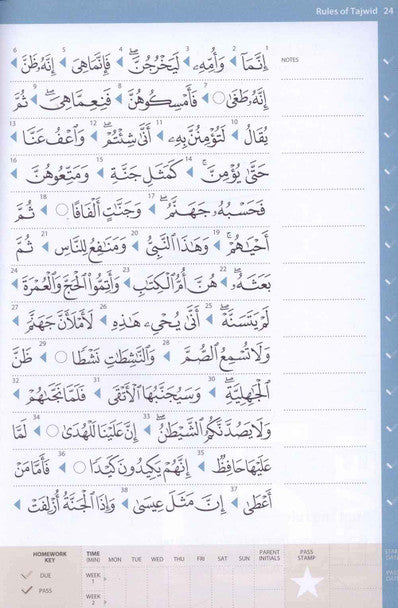 Rules of Tajwid 24
NOTES
1 إِنَّمَآ 2 وَأُمِّهِۦ 3 لَيَخْرُجُنَّ 4 فَإِنَّمَا هِىَ 5 إِنَّهُۥ ظَنَّ 6
إِنَّهُۥ طَغَىٰ 7 فَأَمْسِكُوهُنَّ 8 فَنِعِمَّا هِىَ 9 ثُمَّ
يُقَالُ 10 لَتُؤْمِنُنَّ بِهِۦ 11 أَنَّىٰ شِئْتُمْ 12 وَٱعْفُ عَنَّا 13
حَتَّىٰ يُؤْمِنَّ 14 كَمَثَلِ جَنَّةٍ 15 وَمَتِّعُوهُنَّ 16
فَحَسْبُهُۥ جَهَنَّمُ 17 وَجَنَّٰتٍ أَلْفَافًا 18 ثُمَّ
أَحْيَٰهُمْ 19 وَهَٰذَا ٱلنَّبِىُّ 20 وَمَنَٰفِعُ لِلنَّاسِ 21 ثُمَّ
بَعَثَهُۥ 22 هُنَّ أُمُّ ٱلْكِتَٰبِ 23 وَأَتِمُّوا۟ ٱلْحَجَّ وَٱلْعُمْرَةَ 24
لَمْ يَتَسَنَّهْ 25 أَنَّىٰ يُحْىِۦ هَٰذِهِ 26 لَأَمْلَأَنَّ جَهَنَّمَ 27
وَلَا تُسْمِعُ ٱلصُّمَّ 28 وَٱلنَّٰشِطَٰتِ نَشْطًا 29 ظَنَّ
ٱلْجَٰهِلِيَّةِ 30 وَسَيُجَنَّبُهَا ٱلْأَتْقَى 31 فَلَمَّا نَجَّىٰهُمْ 32
وَلَا يَصُدَّنَّكُمُ ٱلشَّيْطَٰنُ 33 إِنَّ عَلَيْنَا لَلْهُدَىٰ 34 لَمَّا
عَلَيْهَا حَافِظٌ 35 إِنَّهُمْ يَكِيدُونَ كَيْدًا 36 فَأَمَّا مَنْ
أَعْطَىٰ 37 إِنَّ مَثَلَ عِيسَىٰ 38 وَإِذَا ٱلْجَنَّةُ أُزْلِفَتْ
HOMEWORK KEY
DUE
PASS
TIME (MIN) MON TUE WED THU FRI SAT SUN PARENT INITIALS PASS STAMP
WEEK 1
WEEK 2